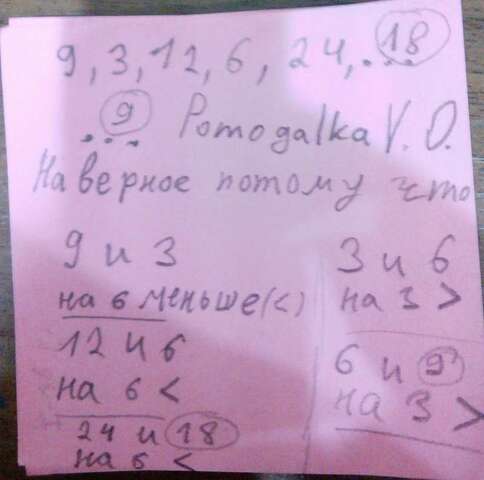 9, 3, 12, 6, 24, ... 18
... 9 Pomogalka V. O.
Наверное потому что
9 и 3
на 6 меньше (<)
12 и 6
на 6 <
24 и 18
на 6 <
3 и 6
на 3 >
6 и 9
на 3 >